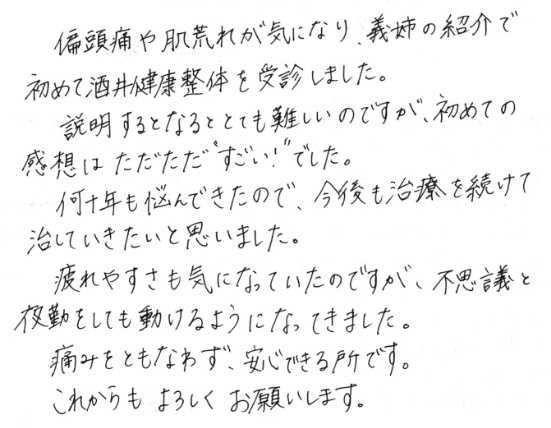 偏頭痛や肌荒れが気になり、義姉の紹介で
初めて酒井健康整体を受診しました。
説明するとなるととても難しいのですが、初めての
感想はただただ“すごい！”でした。
何十年も悩んできたので、今後も治療を続けて
治していきたいと思いました。
疲れやすさも気になっていたのですが、不思議と
夜勤をしても動けるようになってきました。
痛みをともなわず、安心できる所です。
これからもよろしくお願いします。